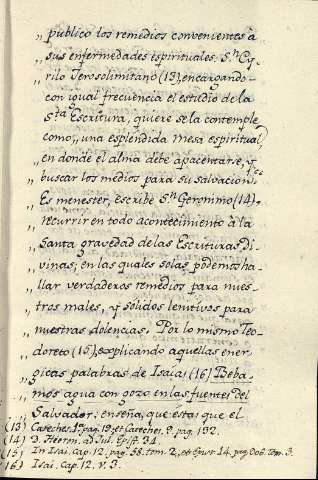 „ publico los remedios convenientes à
„ sus enfermedades espirituales. Sn Cy-
„ rilo Jerosolimitano (13) encargando-
„ con igual frecuencia el estudio de la
„ Sta Escritura, quiere se la contemple
„ como, una esplendida mesa espiritual,
„ en donde el alma debe apacentarse, y
„ buscar los medios para su salvacion.
„ Es menester, escribe Sn Geronimo (14)
„ recurrir en todo acontecimiento à la
„ Santa gravedad de las Escrituras Di-
„ vinas, en las quales solas podemos ha-
„ llar verdaderos remedios para nues-
„ tros males, y sólidos lenitivos para
„ nuestras dolencias. Por lo mismo Teo-
„ doreto (15), explicando aquellas ener-
„ gicas palabras de Isaías (16) Beba-
„ mos agua con gozo en las fuentes del
„ Salvador: enseña, que estas que el
(13) Cateches. 1ª pag. 19, et Cateches. 9. pag. 132.
(14) D. Hieron. ad Jul. Epist. 34.
(15) In Isai. Cap. 12. pag. 58. tom. 2., et pag. 006. Tom. 3.
(16) Isai. Cap. 12. v. 3.